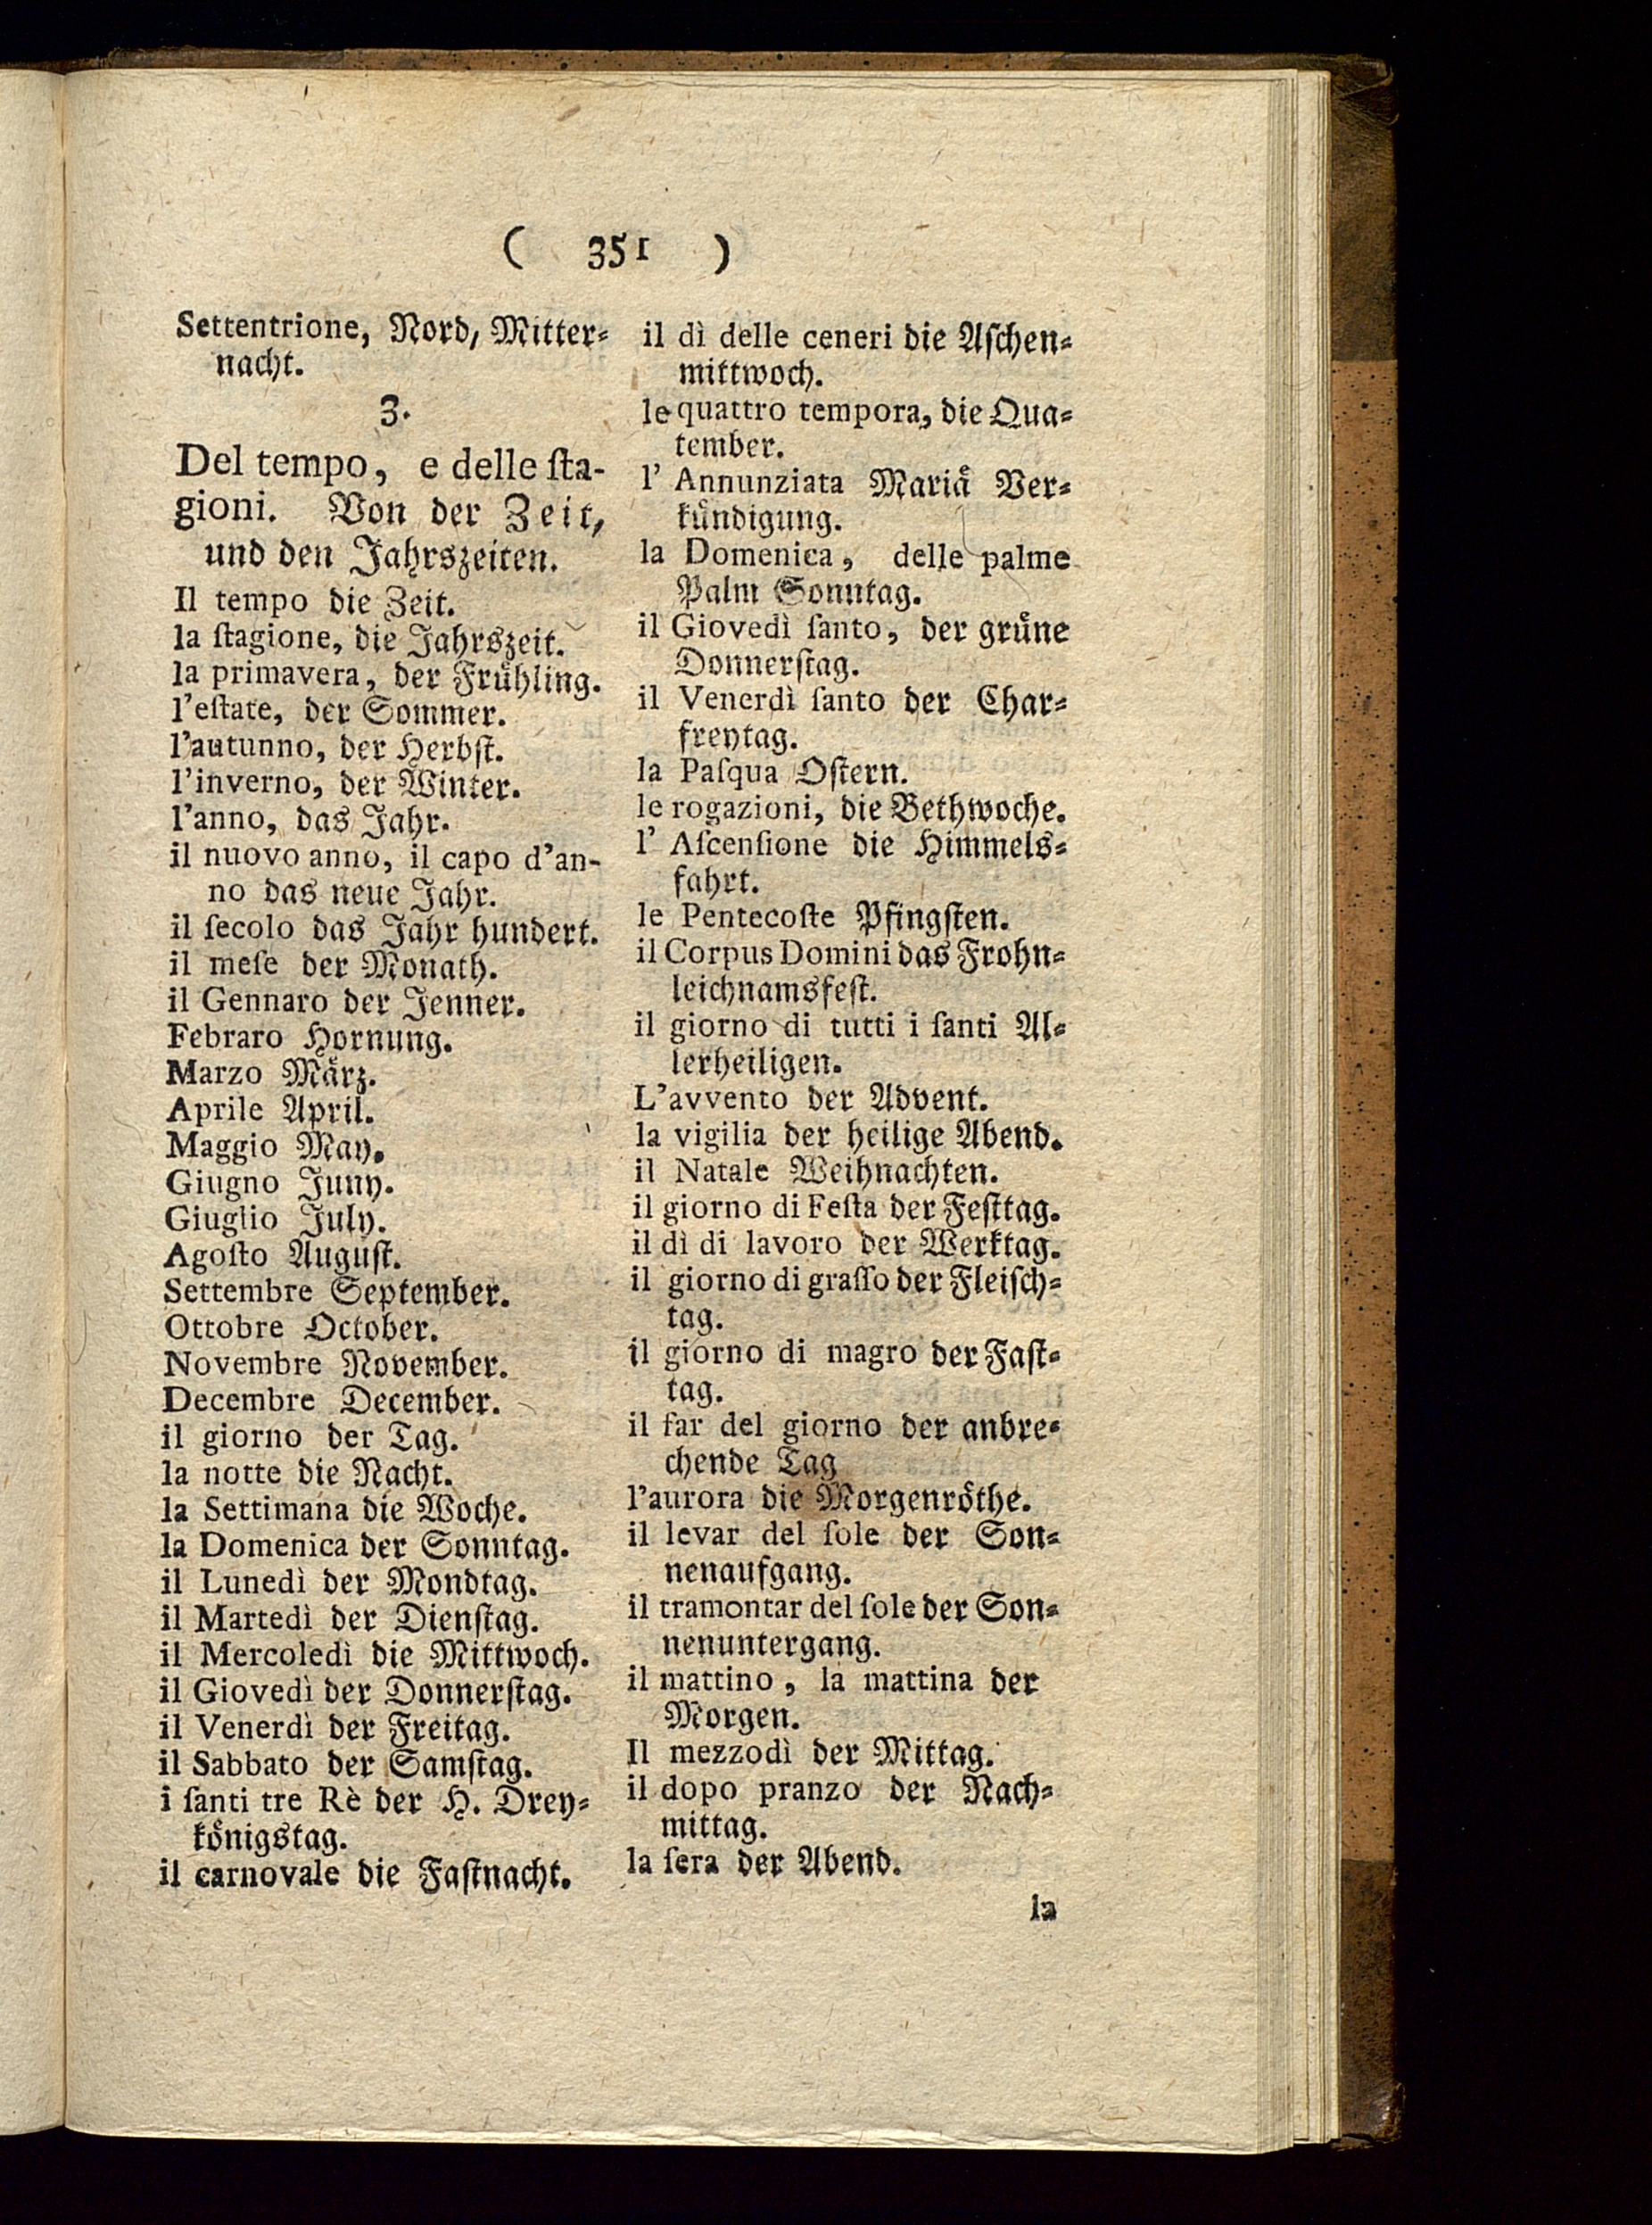 ( 351 )
Settentrione, Nord, Mitter⸗
nacht.
3.
Del tempo, e delle ſta-
gioni. Von der Zeit,
und den Jahrszeiten.
Il tempo die Zeit.
la ſtagione, die Jahrszeit.
la primavera, der Frühling.
l'eſtate, der Sommer.
l'autunno, der Herbſt.
l'inverno, der Winter.
l'anno, das Jahr.
il nuovo anno, il capo d'an-
no das neue Jahr.
il ſecolo das Jahr hundert.
il meſe der Monath.
il Gennaro der Jenner.
Febraro Hornung.
Marzo März.
Aprile April.
Maggio May.
Giugno Juny.
Giuglio July.
Agoſto Auguſt.
Settembre September.
Ottobre October.
Novembre November.
Decembre December.
il giorno der Tag.
la notte die Nacht.
la Settimana die Woche.
la Domenica der Sonntag.
il Lunedì der Mondtag.
il Martedì der Dienſtag.
il Mercoledì die Mittwoch.
il Giovedì der Donnerſtag.
il Venerdì der Freitag.
il Sabbato der Samſtag.
i ſanti tre Rè der H. Drey⸗
königstag.
il carnovale die Faſtnacht.
il dì delle ceneri die Aſchen⸗
mittwoch.
le quattro tempora, die Qua⸗
tember.
l' Annunziata Mariä Ver⸗
kündigung.
la Domenica, delle palme
Palm Sonntag.
il Giovedì ſanto, der grüne
Donnerſtag.
il Venerdì ſanto der Char⸗
freytag.
la Paſqua Oſtern.
le rogazioni, die Bethwoche.
l' Aſcenſione die Himmels⸗
fahrt.
le Pentecoſte Pfingſten.
il Corpus Domini das Frohn⸗
leichnamsfeſt.
il giorno di tutti i ſanti Al⸗
lerheiligen.
L'avvento der Advent.
la vigilia der heilige Abend.
il Natale Weihnachten.
il giorno di Feſta der Feſttag.
il dì di lavoro der Werktag.
il giorno di graſſo der Fleiſch⸗
tag.
il giorno di magro der Faſt⸗
tag.
il far del giorno der anbre⸗
chende Tag
l'aurora die Morgenröthe.
il levar del ſole der Son⸗
nenaufgang.
il tramontar del ſole der Son⸗
nenuntergang.
il mattino, la mattina der
Morgen.
Il mezzodì der Mittag.
il dopo pranzo der Nach⸗
mittag.
la ſera der Abend.
la